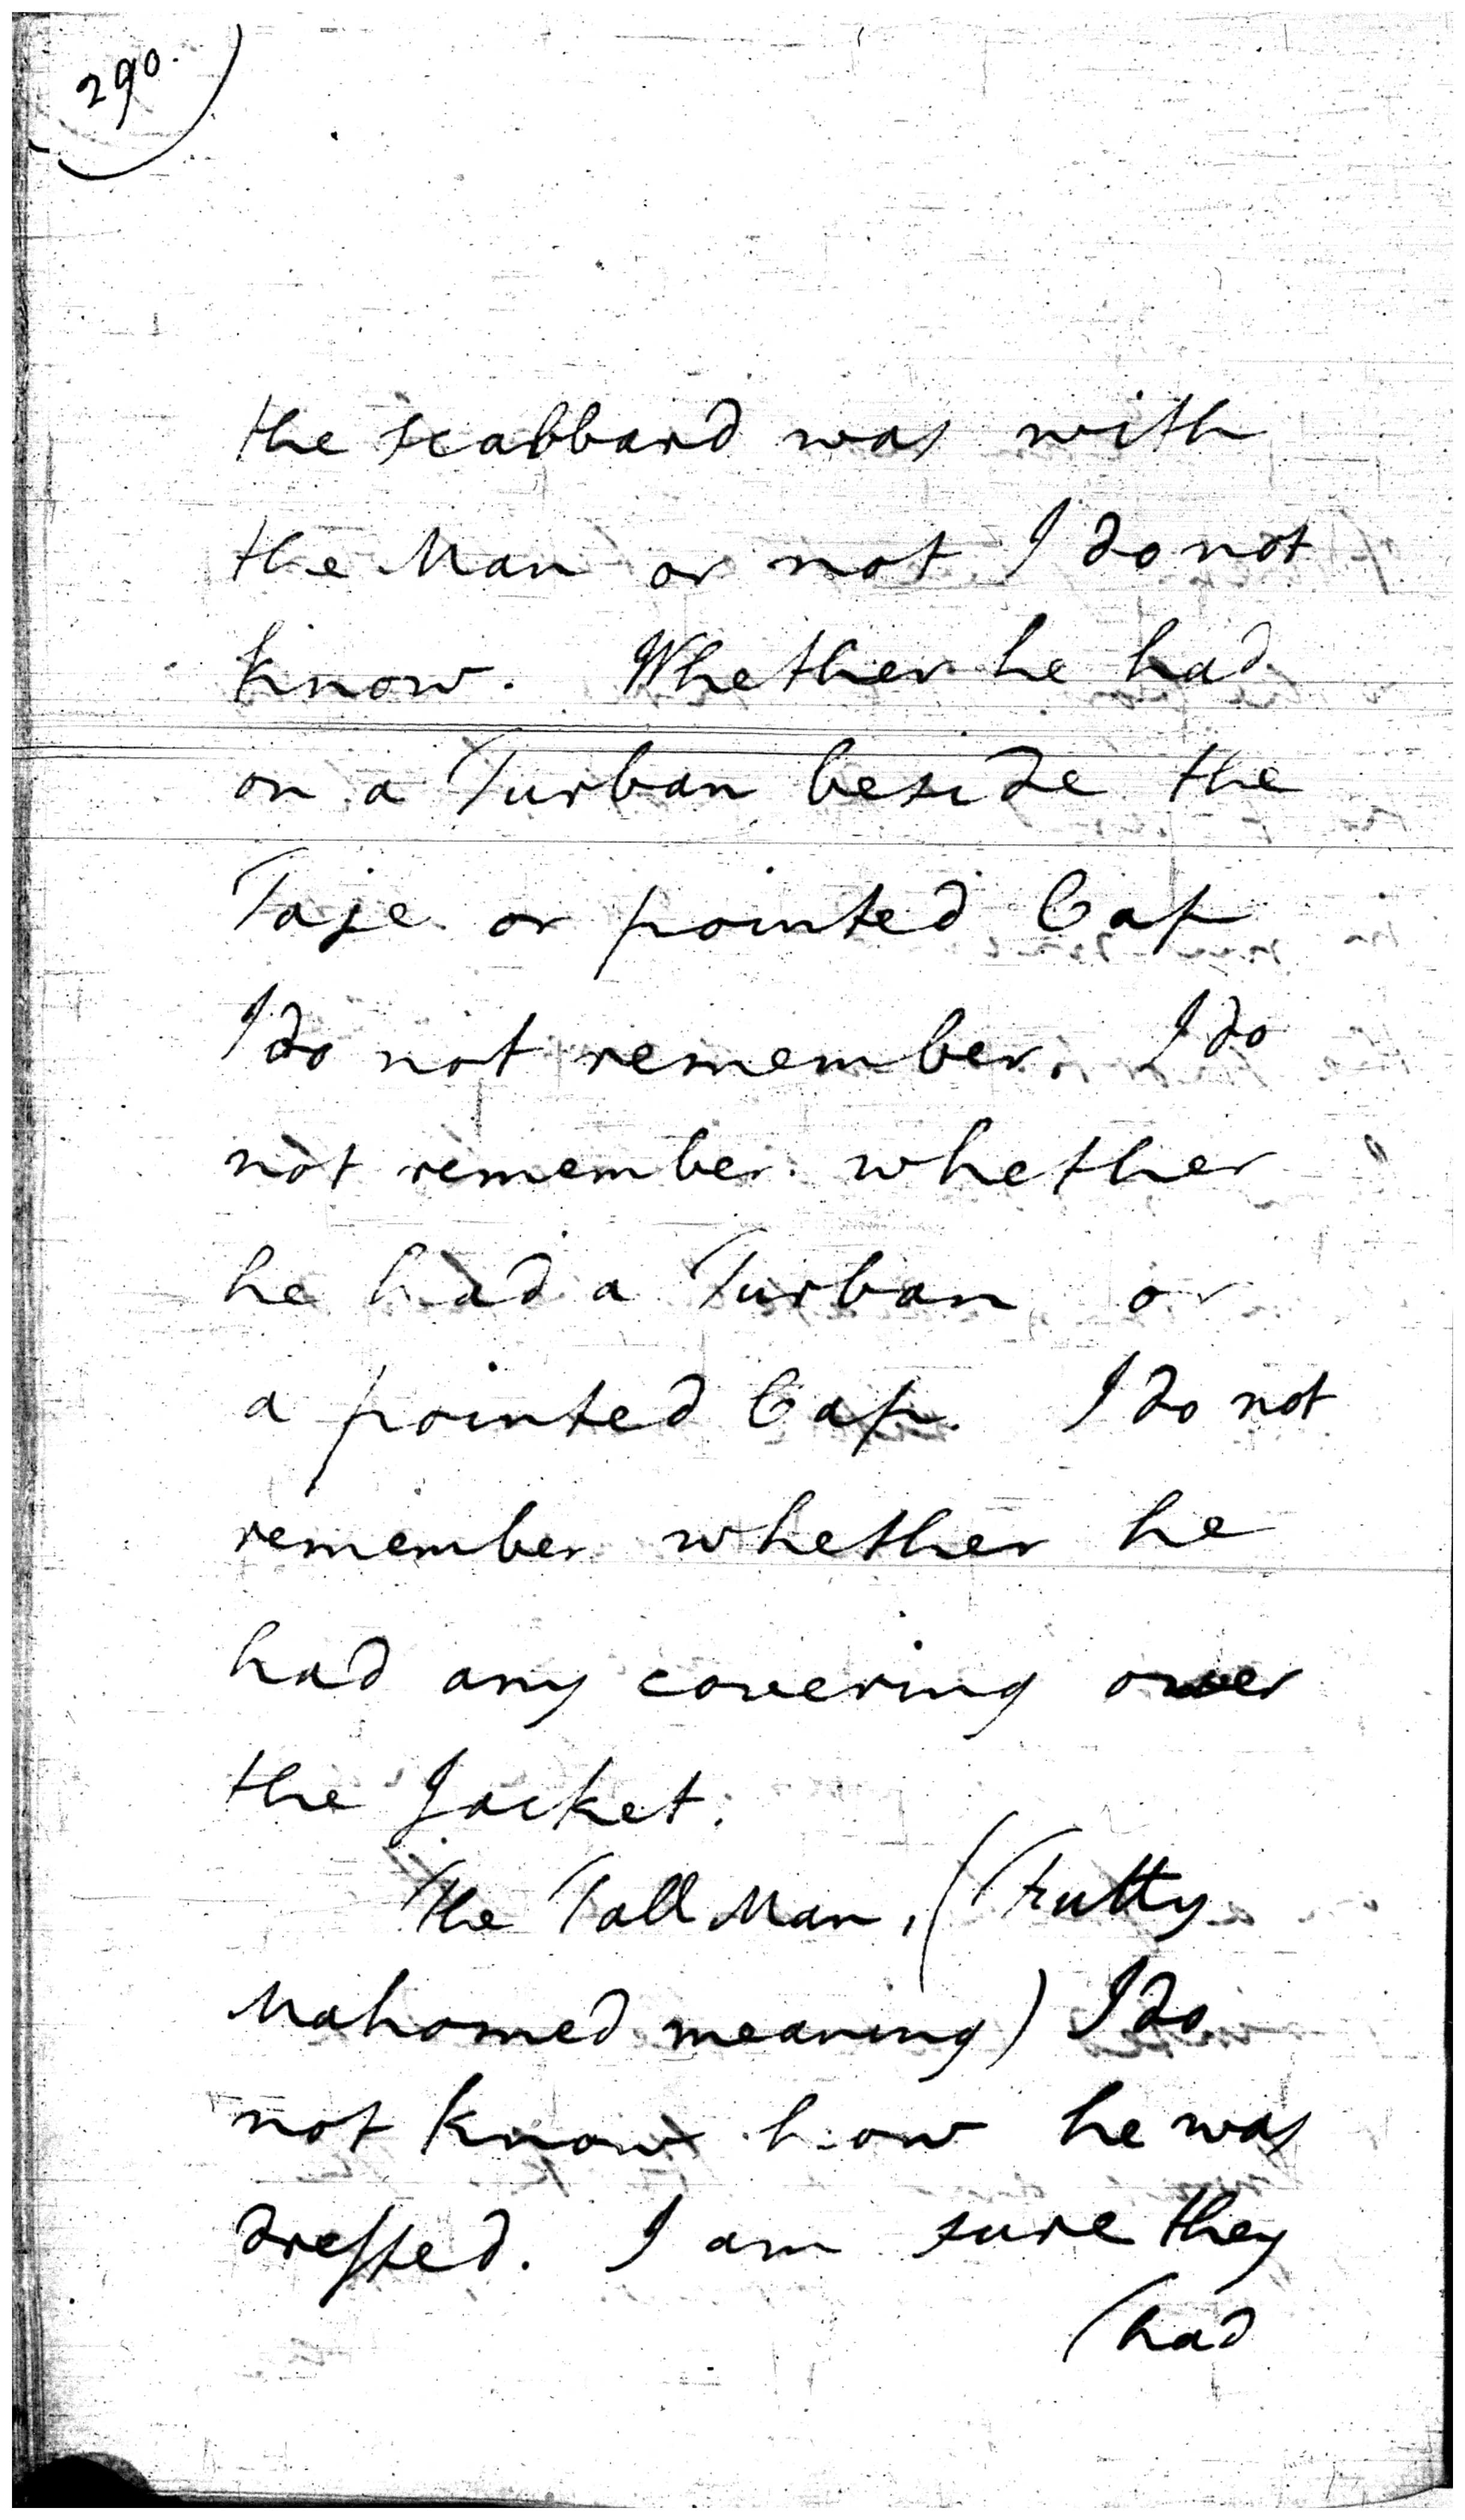 290.
the scabbard was with
the Man or not I do not
know. Whether he had
on a Turban beside the
Taje or pointed Cap
I do not remember. I do
not remember whether
he had a Turban or
a pointed Cap. I do not
remember whether he
had any covering over
the Jacket.
The Tall Man, (Futty
Mahomed meaning) I do
not know how he was
dressed. I am sure they
(had